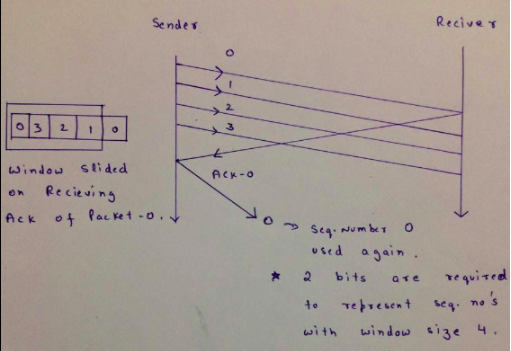 Sender
Reciver
0
1
2
3
0 3 2 1 0
Window Slided
on Recieving
Ack of Packet-0.
Ack-0
0 → Seq. Number 0
used again.
* 2 bits are required
to represent seq. no's
with window size 4.